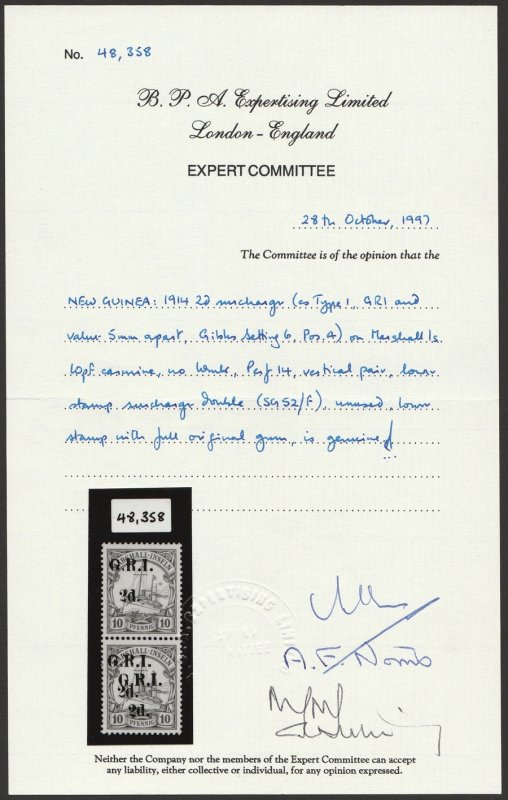 No. 48,358
B. P. A. Expertising Limited
London - England
EXPERT COMMITTEE
28th October, 1997
The Committee is of the opinion that the
NEW GUINEA: 1914 2d surcharge (as Type 1, GRI and
value 5mm apart, Gibbs Setting 6, Pos. 4) on Marshall Is.
10pf. carmine, no wmk., Perf 14, vertical pair, lower
stamp surcharge double (SG52/f), unused, lower
stamp with full original gum, is genuine
48,358
MARSHALL-INSELN
G.R.I.
2d.
10 PFENNIG 10
MARSHALL-INSELN
G.R.I.
G.R.I.
2d.
2d.
10 PFENNIG 10
A. F. Norris
Neither the Company nor the members of the Expert Committee can accept
any liability, either collective or individual, for any opinion expressed.